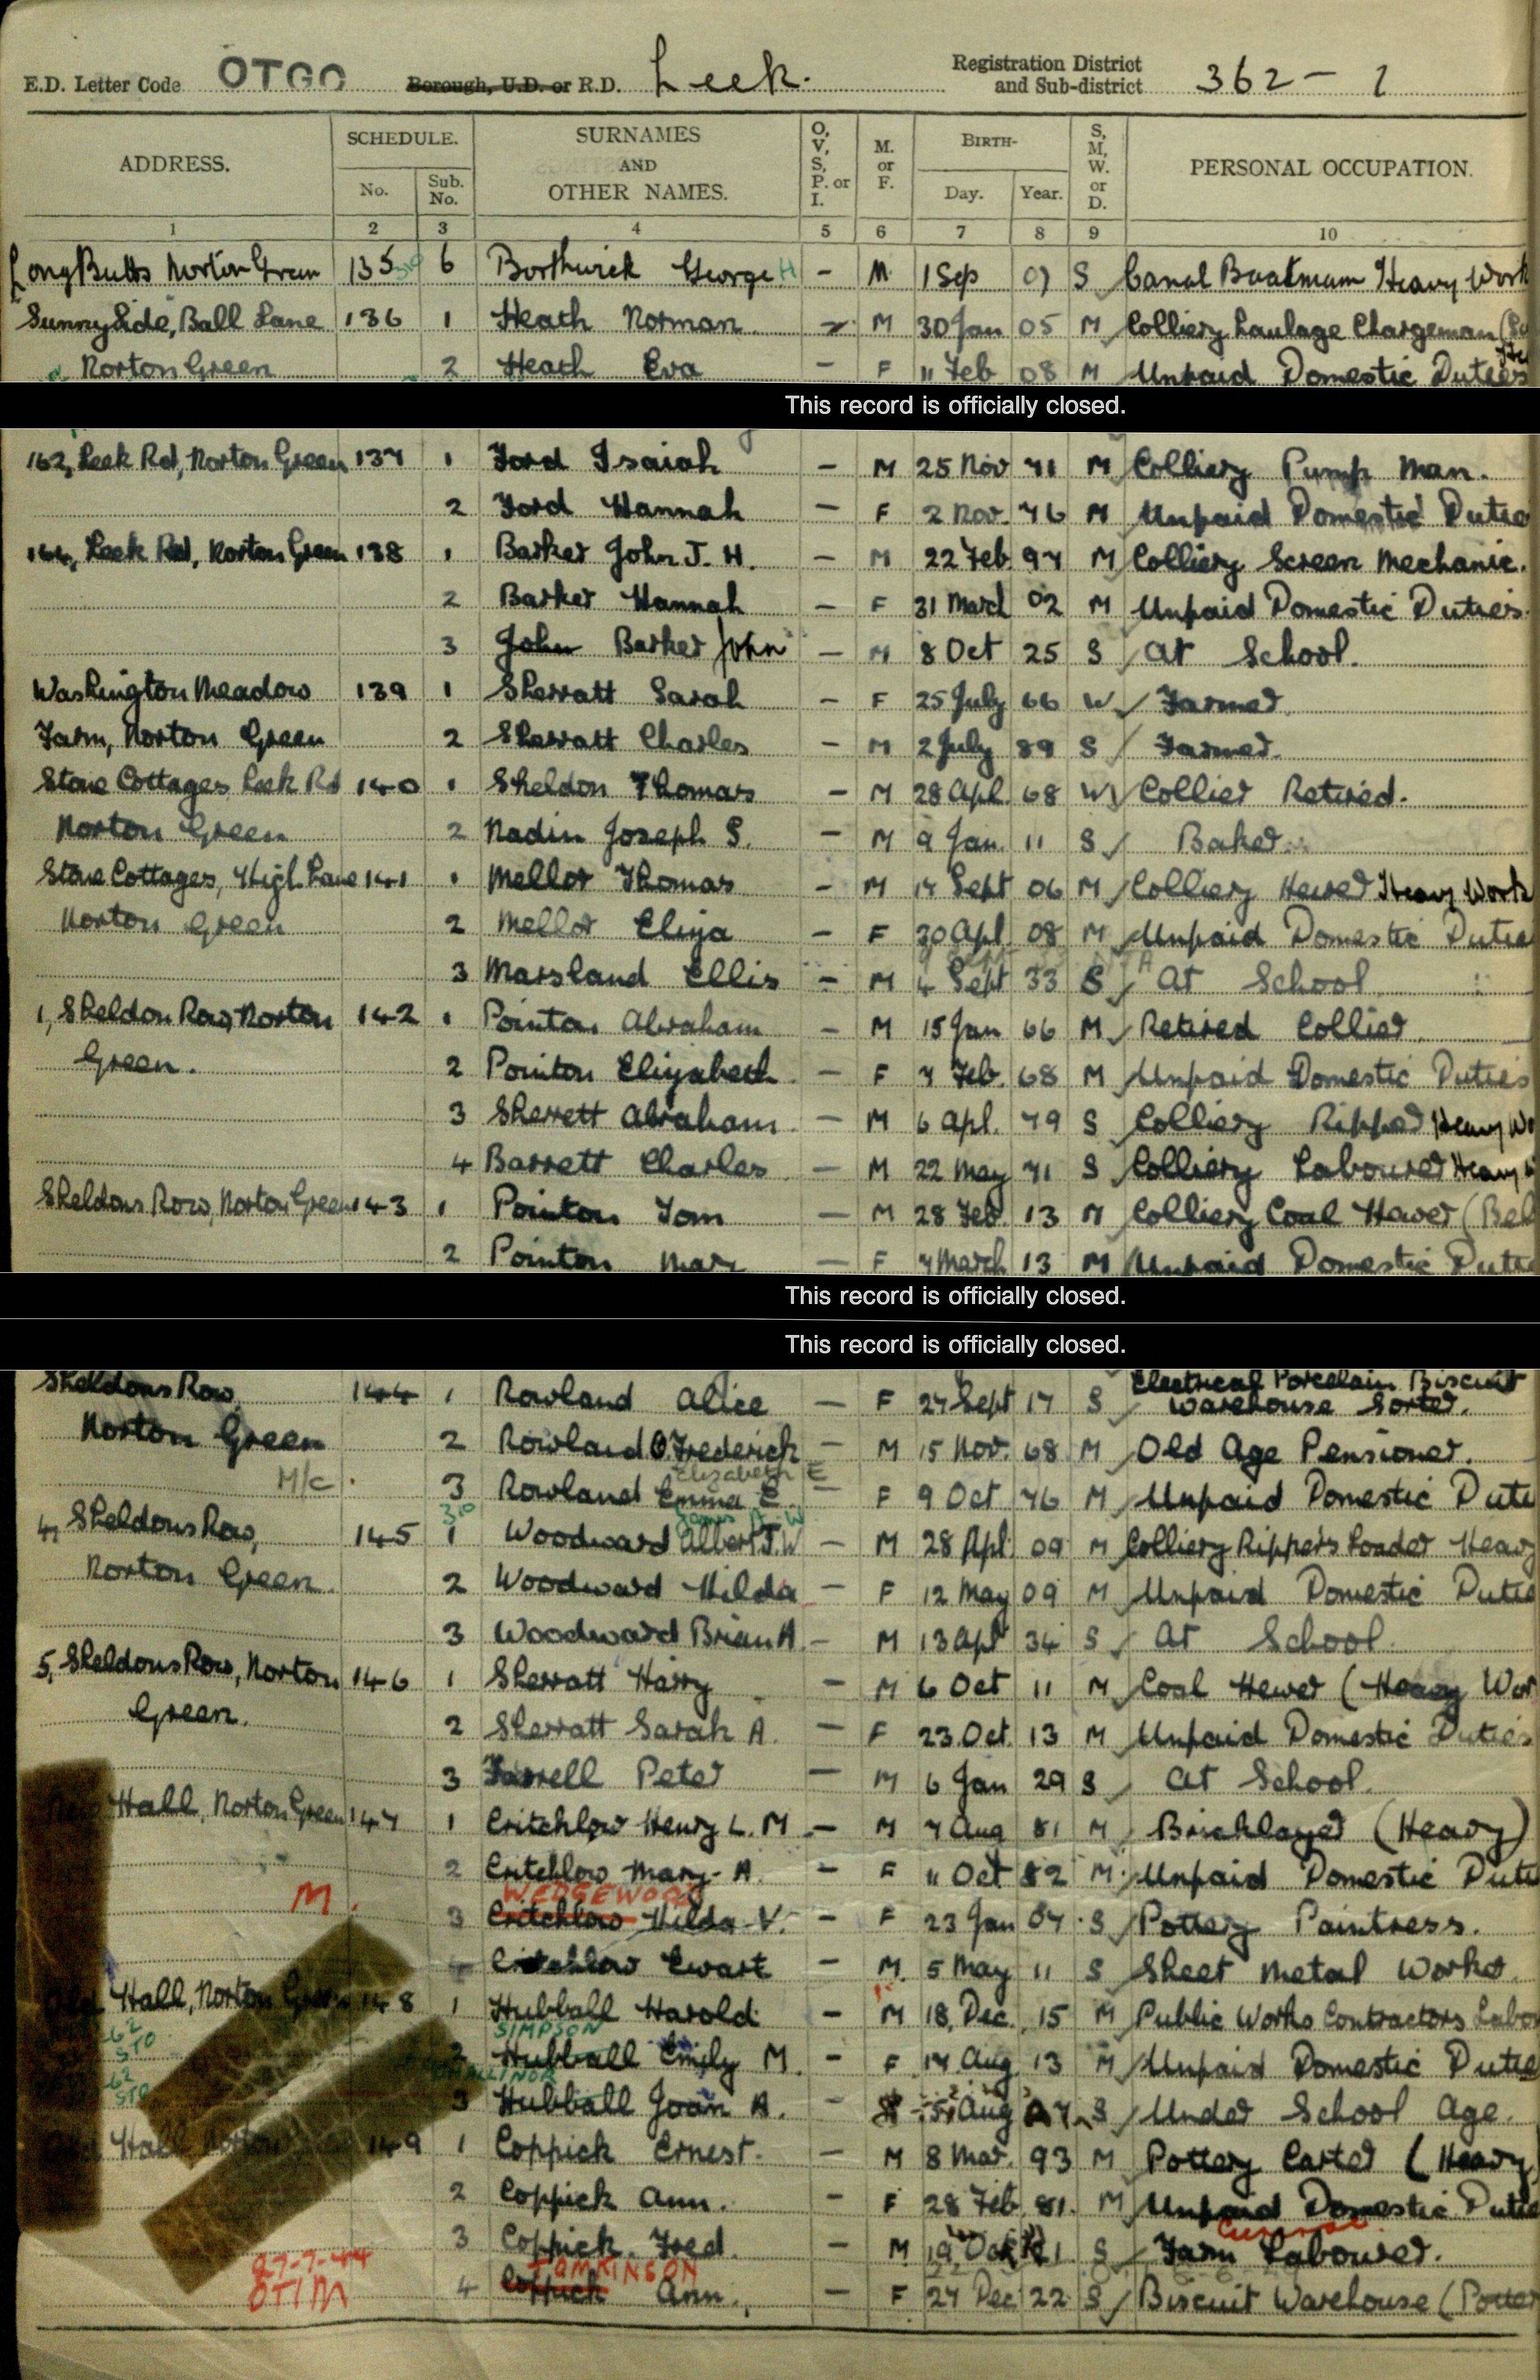 E.D. Letter Code OTGO Borough, U.D. or R.D. Leek. Registration District and Sub-district 362 - 1
ADDRESS. SCHEDULE. No. Sub. No. SURNAMES AND OTHER NAMES. O, V, S, P. or I. M. or F. BIRTH- Day. Year. S, M, W. or D. PERSONAL OCCUPATION.
1 2 3 4 5 6 7 8 9 10
Long Butts Norton Green 135 6 Borthwick George H - M 1 Sep 07 S Canal Boatman Heavy Work
Sunny Side, Ball Lane 136 1 Heath Norman - M 30 Jan 05 M Colliery Haulage Chargeman
Norton Green 2 Heath Eva - F 11 Feb 08 M Unpaid Domestic Duties
This record is officially closed.
162, Leek Rd, Norton Green 137 1 Ford Isaiah - M 25 Nov 71 M Colliery Pump Man.
2 Ford Hannah - F 2 Nov. 76 M Unpaid Domestic Dutie
164, Leek Rd, Norton Green 138 1 Barker John J. H. - M 22 Feb 97 M Colliery Screen Mechanic.
2 Barker Hannah - F 31 March 02 M Unpaid Domestic Duties.
3 John Barker John - M 8 Oct 25 S At School.
Washington Meadow 139 1 Sherratt Sarah - F 25 July 66 W Farmer.
Farm, Norton Green 2 Sherratt Charles - M 2 July 89 S Farmer.
Stone Cottages Leek Rd 140 1 Sheldon Thomas - M 28 Apl 68 W Collier Retired.
Norton Green 2 Nadin Joseph S. - M 9 Jan 11 S Baker.
Stone Cottages, High Lane 141 1 Mellor Thomas - M 17 Sept 06 M Colliery Hewer Heavy Work
Norton Green 2 Mellor Eliza - F 30 Apl 08 M Unpaid Domestic Dutie
3 Marsland Ellis - M 4 Sept 33 S At School
1, Sheldon Row, Norton 142 1 Pointon Abraham - M 15 Jan 66 M Retired Collier
Green. 2 Pointon Elizabeth - F 7 Feb. 68 M Unpaid Domestic Duties
3 Sherrett Abraham. - M 6 Apl. 79 S Colliery Ripper Heavy Wo
4 Barrett Charles - M 22 May 71 S Colliery Labourer Heavy
Sheldons Row, Norton Green 143 1 Pointon Tom - M 28 Feb 13 M Colliery Coal Hewer (Bel
2 Pointon Mary - F 7 March 13 M Unpaid Domestic Dutie
This record is officially closed.
This record is officially closed.
Sheldons Row, 144 1 Rowland Alice - F 27 Sept 17 S Electrical Porcelain Biscuit Warehouse Sorter.
Norton Green 2 Rowland Frederick - M 15 Nov. 68 M Old Age Pensioner.
M/c. Elizabeth E
3 Rowland Emma E. - F 9 Oct 76 M Unpaid Domestic Duti
James A. W
4, Sheldons Row, 145 1 Woodward Albert J. W - M 28 Apl 09 M Colliery Rippers Loader Heavy
Norton Green. 2 Woodward Hilda - F 12 May 09 M Unpaid Domestic Dutie
3 Woodward Brian A. - M 13 Apl 34 S At School.
5, Sheldons Row, Norton 146 1 Sherratt Harry - M 6 Oct 11 M Coal Hewer (Heavy Wor
Green. 2 Sherratt Sarah A. - F 23 Oct. 13 M Unpaid Domestic Duties
3 Farrell Peter - M 6 Jan 29 S At School.
Hall, Norton Green 147 1 Critchlow Henry L. M - M 7 Aug 81 M Bricklayer (Heavy)
2 Critchlow Mary A. - F 11 Oct 82 M Unpaid Domestic Duti
M. WEDGEWOOD
3 Critchlow Hilda V. - F 23 Jan 07 S Pottery Paintress.
Critchlow Ewart - M. 5 May 11 S Sheet Metal Worker
Hall, Norton Green 148 1 Hubball Harold - M 18, Dec. 15 M Public Works Contractors Labo
62 STO SIMPSON
2 Hubball Emily M. - F 17 Aug 13 M Unpaid Domestic Dutie
62 STO
3 Hubball Joan A. - Aug S Under School Age.
Hall Norton 149 1 Coppick Ernest. - M 8 Mar. 93 M Pottery Carter (Heavy
2 Coppick Ann. - F 28 Feb 81. M Unpaid Domestic Dutie
3 Coppick. Fred. - M 19 Oct 21 S Farm Labourer.
27-7-44 TOMKINSON
OTIM 4 Coppick Ann. - F 27 Dec 22 S Biscuit Warehouse (Potter